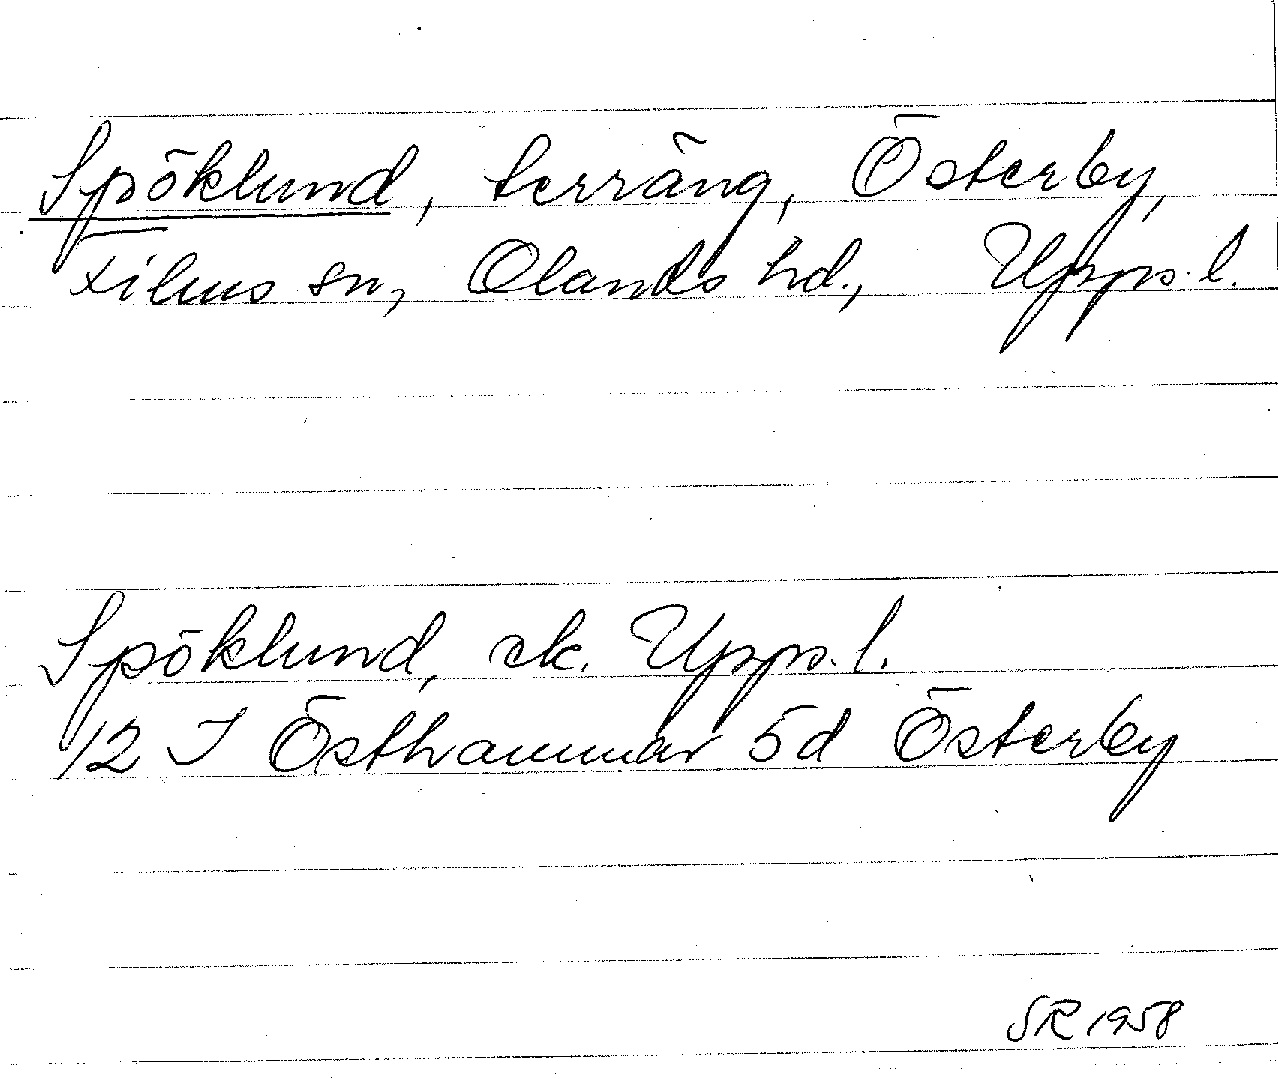 Spöklund, terräng, Österby,
Films sn, Olands hd., Upps. l.
Spöklund, ek. Upps. l.
12 I Östhammar 5d Österby
SR 1958